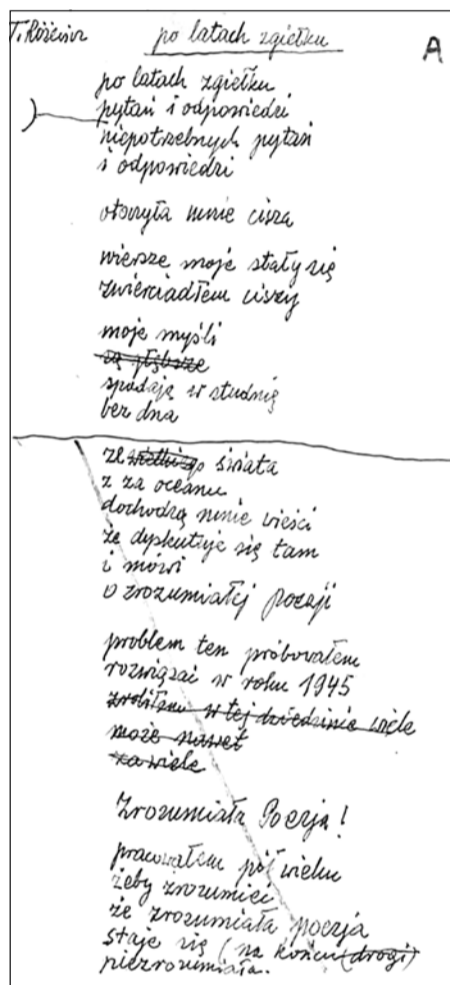 T. Różewicz
po latach zgiełku
A
po latach zgiełku
pytań i odpowiedzi
niepotrzebnych pytań
i odpowiedzi
otoczyła mnie cisza
wiersze moje stały się
zwierciadłem ciszy
moje myśli
są głębsze
spadają w studnię
bez dna
ze wielkiego świata
z za oceanu
dochodzą mnie wieści
że dyskutuje się tam
i mówi
o zrozumiałej poezji
problem ten próbowałem
rozwiązać w roku 1945
zrobiłem w tej dziedzinie wiele
może nawet
za wiele
Zrozumiała Poezja!
pracowałem pół wieku
żeby zrozumieć
że zrozumiała poezja
staje się (na końcu (drogi)
niezrozumiała.